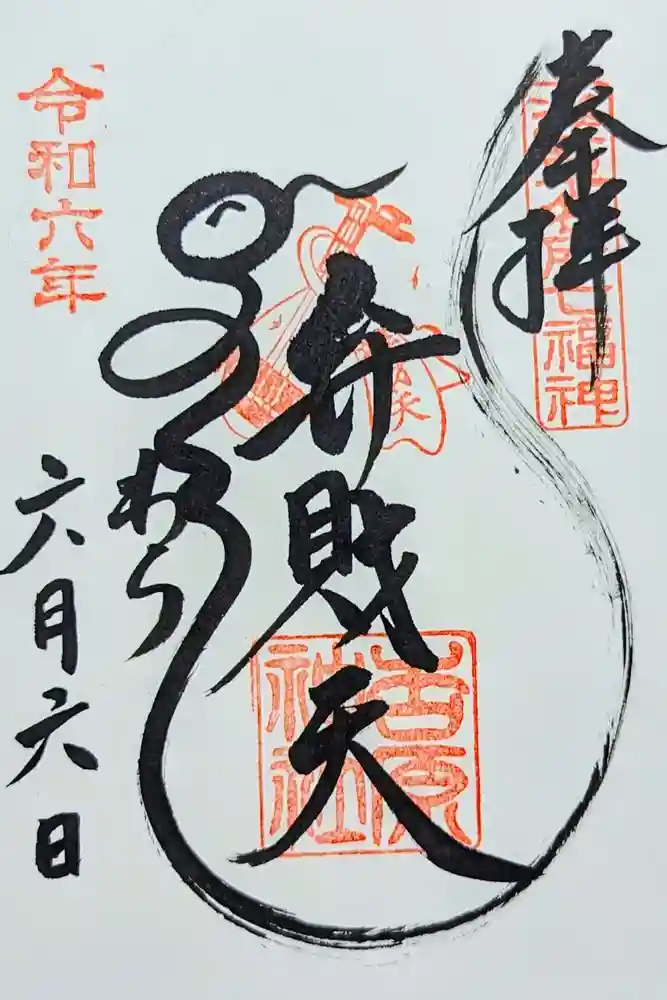 奉拝
七福神
弁財天
吉原
神社
わら
令和六年
六月六日